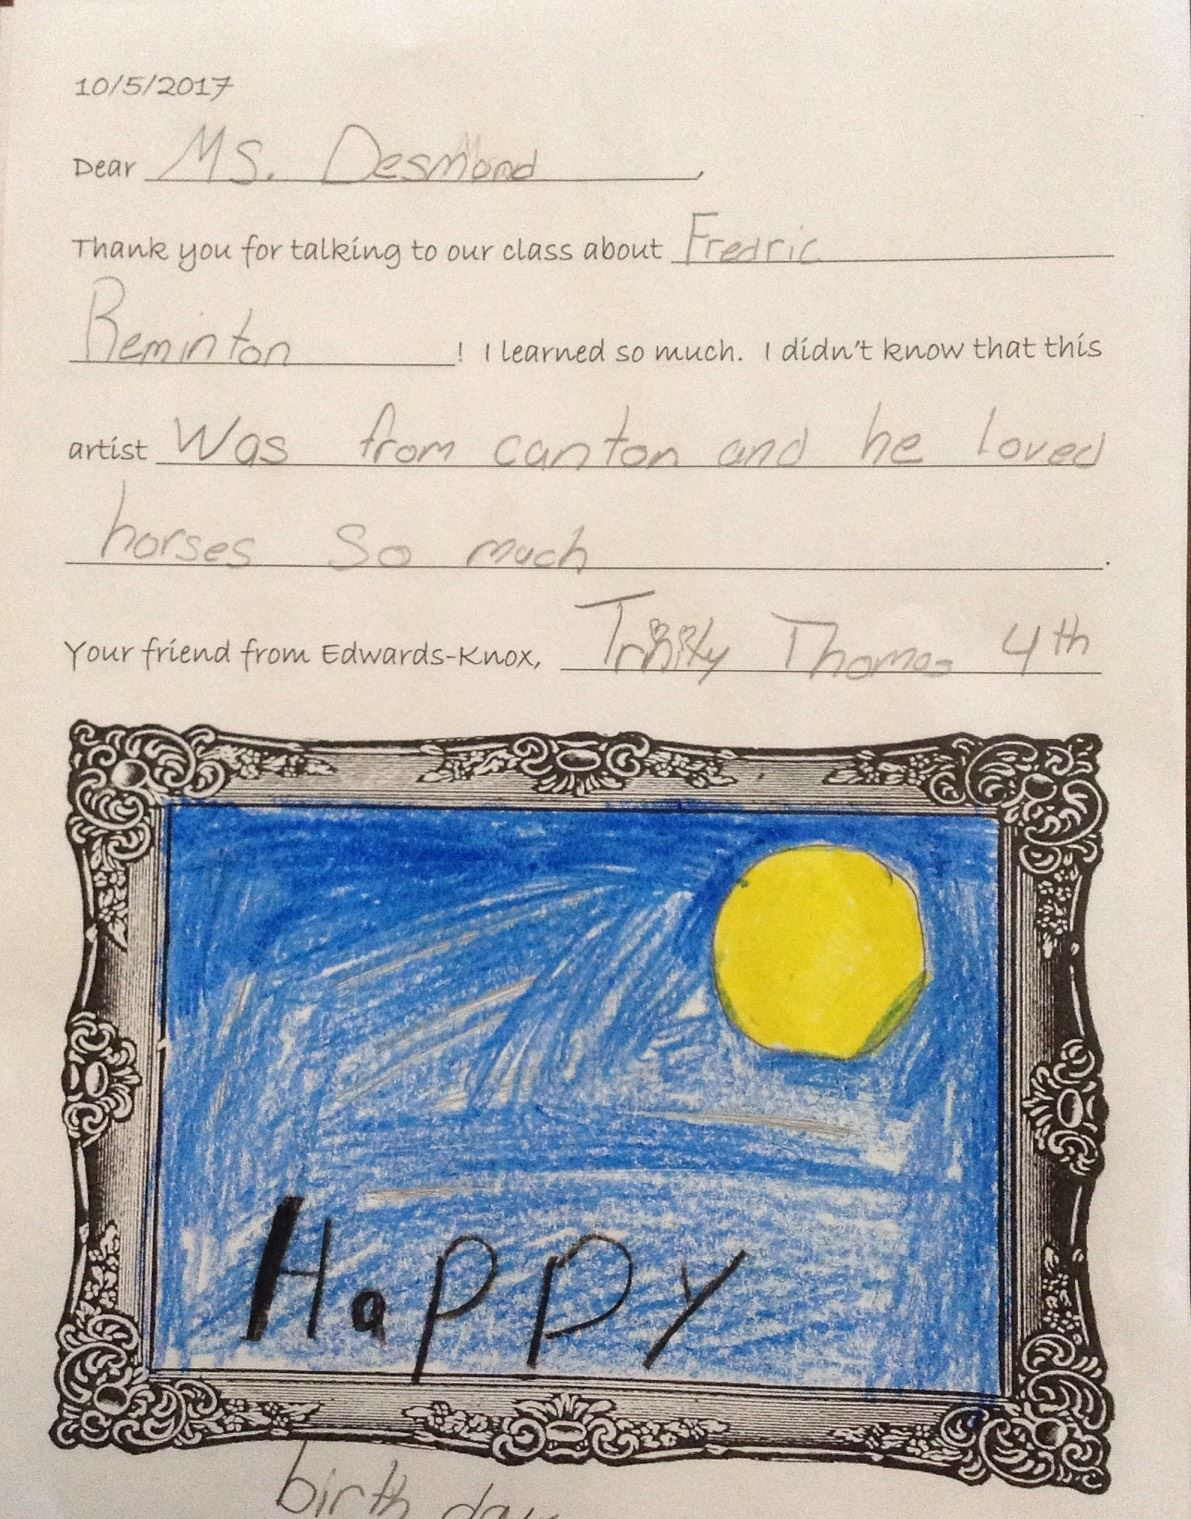 10/5/2017
Dear Ms. Desmond,
Thank you for talking to our class about Fredric
Reminton! I learned so much. I didn't know that this
artist Was from canton and he loved
horses So much.
Your friend from Edwards-Knox, Trinity Thomas 4th
Happy
birth day